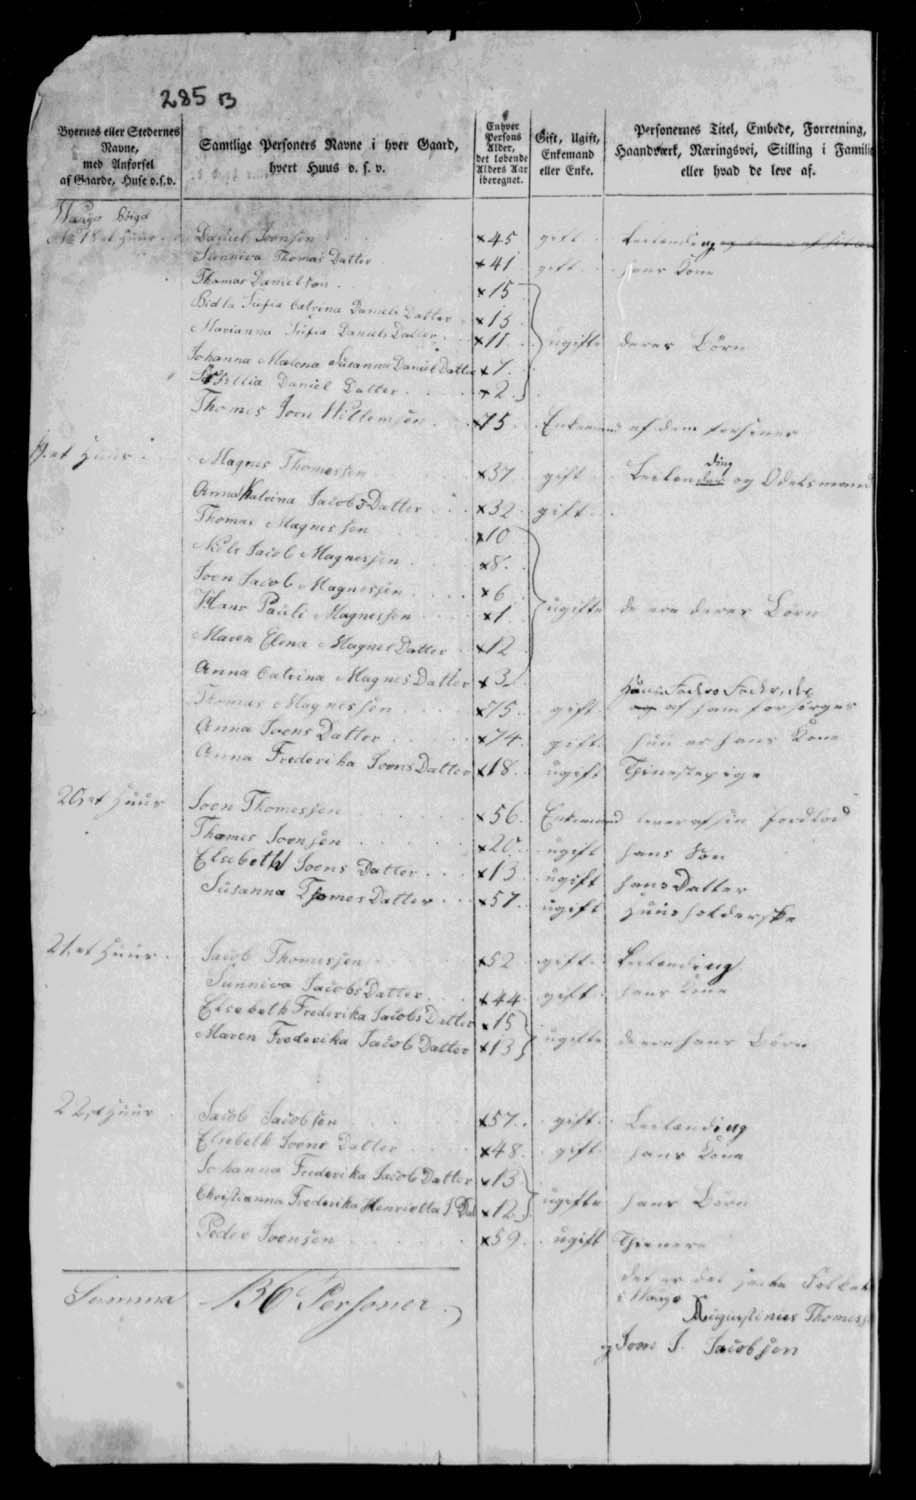 285 B
Byernes eller Stedernes Navne, med Anførsel af Gaarde, Huse o.s.v.
Samtlige Personers Navne i hver Gaard, hvert Huus o. s. v.
Enhver Persons Alder, det løbende Alders Aar iberegnet.
Gift, Ugift, Enkemand eller Enke.
Personernes Titel, Embede, Forretning, Haandværk, Næringsvei, Stilling i Famili eller hvad de leve af.
Daniel Joensen 45 gift
Sunniva Thomas Datter 41 gift hans Kone
Thomas Danielson 15
Sufia Catrina Daniels Datter 13
Marianna Sufia Daniels Datter 11 ugifte deres Börn
Johanna Malena Susanna Daniel Datter 7
Daniel Datter 2
Thomes Joen Willemsen 75 Enkemand af dem
19. et Huus
Magnes Thomessen 37 gift og Odelsmand
Anna Katrina Jacobs Datter 32 gift
Thomas Magnessen 10
Niels Jacob Magnessen 8
Joen Jacob Magnessen 6
Hans Pauli Magnessen 1 ugifte de ere deres Börn
Maren Elena Magnes Datter 12
Anna Catrina Magnes Datter 3
Thomas Magnessen 75 gift af ham forsörges
Anna Joens Datter 74 gift hun er hans Kone
Anna Frederika Joens Datter 18 ugift Tienestepige
20 et Huus
Joen Thomessen 56 Enkemand lever af sin Jordlod
Thomes Joensen 20 ugift hans Sön
Elsebeth Joens Datter 13 ugift hans Datter
Susanna Thomes Datter 57 ugift Huusholderske
21. et Huus
Jacob Thomessen 52 gift Leilending
Sunniva Jacobs Datter 44 gift hans Kone
Elsebeth Frederika Jacobs Datter 15
Maren Frederika Jacob Datter 13 ugifte de ere hans Börn
22 et Huus
Jacob Jacobsen 57 gift Leilending
Elsebeth Joens Datter 48 gift hans Kone
Johanna Frederika Jacob Datter 13
Christianna Frederika Henrietta J Dat 12 ugifte hans Börn
Peder Joensen 59 ugift Tienere
Summa 136 Personer
det er det
Augustinus Thomess
og Joen J. Jacobsen